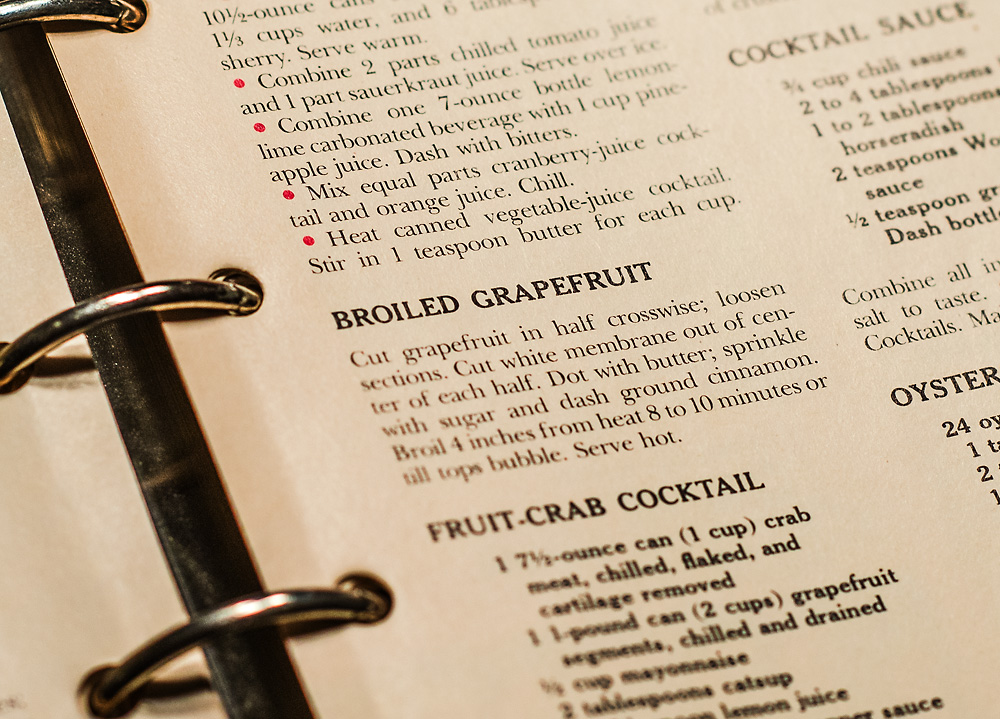 10½-ounce cans
1⅓ cups water, and 6
sherry. Serve warm.
• Combine 2 parts chilled tomato juice
and 1 part sauerkraut juice. Serve over ice.
• Combine one 7-ounce bottle lemon-
lime carbonated beverage with 1 cup pine-
apple juice. Dash with bitters.
• Mix equal parts cranberry-juice cock-
tail and orange juice. Chill.
• Heat canned vegetable-juice cocktail.
Stir in 1 teaspoon butter for each cup.
BROILED GRAPEFRUIT
Cut grapefruit in half crosswise; loosen
sections. Cut white membrane out of cen-
ter of each half. Dot with butter; sprinkle
with sugar and dash ground cinnamon.
Broil 4 inches from heat 8 to 10 minutes or
till tops bubble. Serve hot.
FRUIT-CRAB COCKTAIL
1 7½-ounce can (1 cup) crab
meat, chilled, flaked, and
cartilage removed
1 1-pound can (2 cups) grapefruit
segments, chilled and drained
cup mayonnaise
2 tablespoons catsup
lemon juice
sauce
COCKTAIL SAUCE
¾ cup chili sauce
2 to 4 tablespoons
1 to 2 tablespoons
horseradish
2 teaspoons
sauce
½ teaspoon
Dash
Combine all
salt to taste.
Cocktails.
OYSTER
24
1
2
1